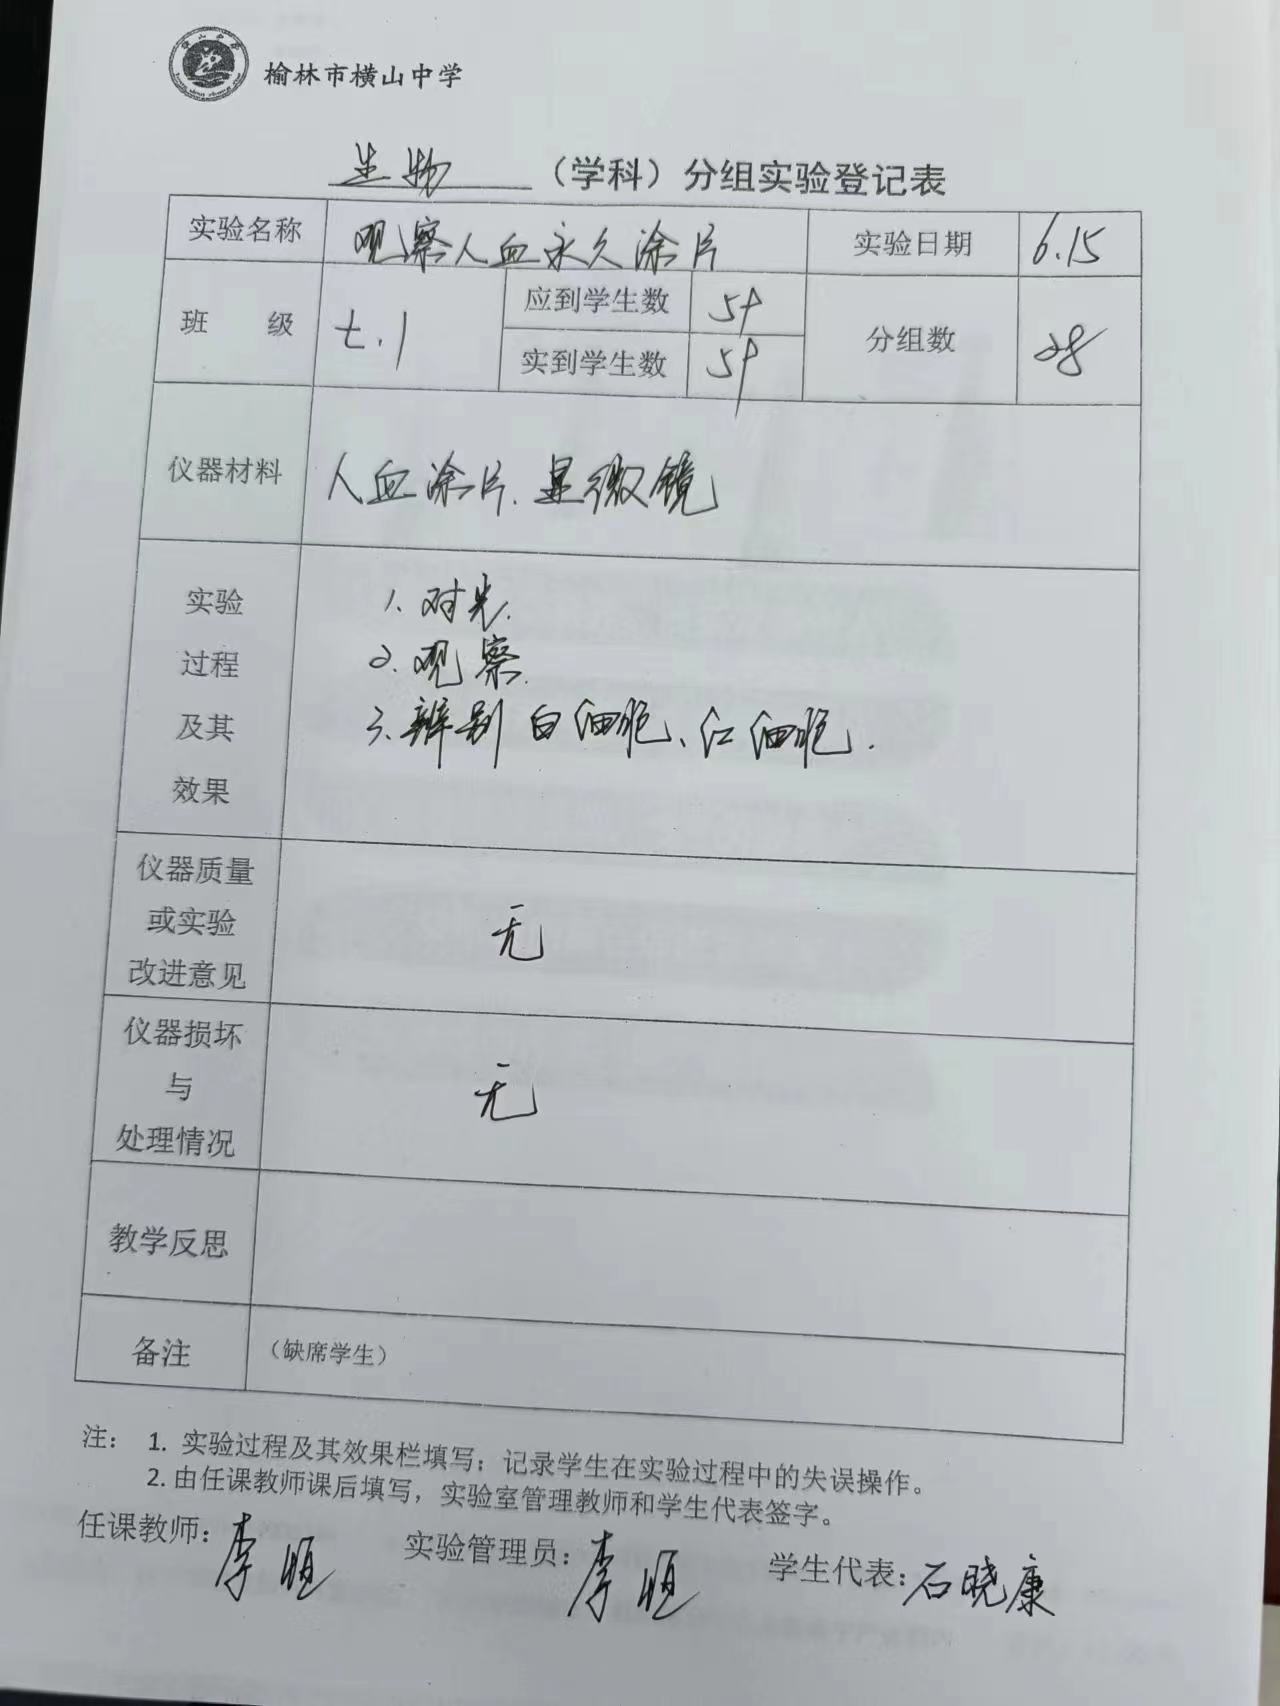 榆林市横山中学
生物 （学科）分组实验登记表
实验名称 观察人血永久涂片 实验日期 6.15
班 级 七.1 应到学生数 59 分组数 28
实到学生数 59
仪器材料 人血涂片.显微镜
实验 1. 对光.
过程 2. 观察.
及其 3. 辨别白细胞、红细胞.
效果
仪器质量
或实验 无
改进意见
仪器损坏
与 无
处理情况
教学反思
备注 （缺席学生）
注： 1. 实验过程及其效果栏填写：记录学生在实验过程中的失误操作。
2. 由任课教师课后填写，实验室管理教师和学生代表签字。
任课教师： 李 实验管理员： 李 学生代表： 石晓康